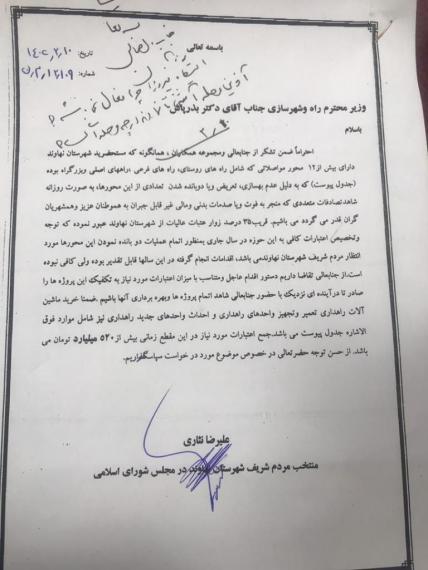 باسمه تعالی
تاریخ: ۱۴۰۲٫۲٫۱۰
شماره:
وزیر محترم راه وشهرسازی جناب آقای دکتر بذرپاش
باسلام
احتراماً ضمن تشکر از جنابعالی ومجموعه همکاریتان، همانگونه که مستحضرید شهرستان نهاوند
دارای بیش از۱۲ محور مواصلاتی که شامل راه های روستای، راه های فرعی ،راههای اصلی وبزرگراه بوده
(جدول پیوست) که به دلیل عدم بهسازی، تعریض ویا دوبانده شدن تعدادی از این محورها، به صورت روزانه
شاهد تصادفات متعددی که منجر به فوت ویا صدمات بدنی ومالی غیر قابل جبران به هموطنان عزیز وهمشهریان
گران قدر می گردد می باشیم. قریب۳۵ درصد زوار عتبات عالیات از شهرستان نهاوند عبور نموده که توجه
وتخصیص اعتبارات کافی به این حوزه در سال جاری بمنظور اتمام عملیات دو بانده نمودن این محورها مورد
انتظار مردم شریف شهرستان نهاوندمی باشد، اقدامات انجام گرفته در این سالها قابل تقدیر بوده ولی کافی نبوده
است.از جنابعالی تقاضا داریم دستور اقدام عاجل ومتناسب با میزان اعتبارات مورد نیاز به تفکیک این پروژه ها را
صادر تا درآینده ای نزدیک با حضور جنابعالی شاهد اتمام پروژه ها وبهره برداری آنها باشیم .ضمنا خرید ماشین
آلات راهداری تعمیر وتجهیز واحدهای راهداری و احداث واحدهای جدید راهداری نیز شامل موارد فوق
الاشاره جدول پیوست می باشد.جمع اعتبارات مورد نیاز در این مقطع زمانی بیش از۵۲۰ میلیارد تومان می
باشد. از حسن توجه حضرتعالی در خصوص موضوع مورد در خواست سپاسگذاریم.
علیرضا نثاری
منتخب مردم شریف شهرستان نهاوند در مجلس شورای اسلامی